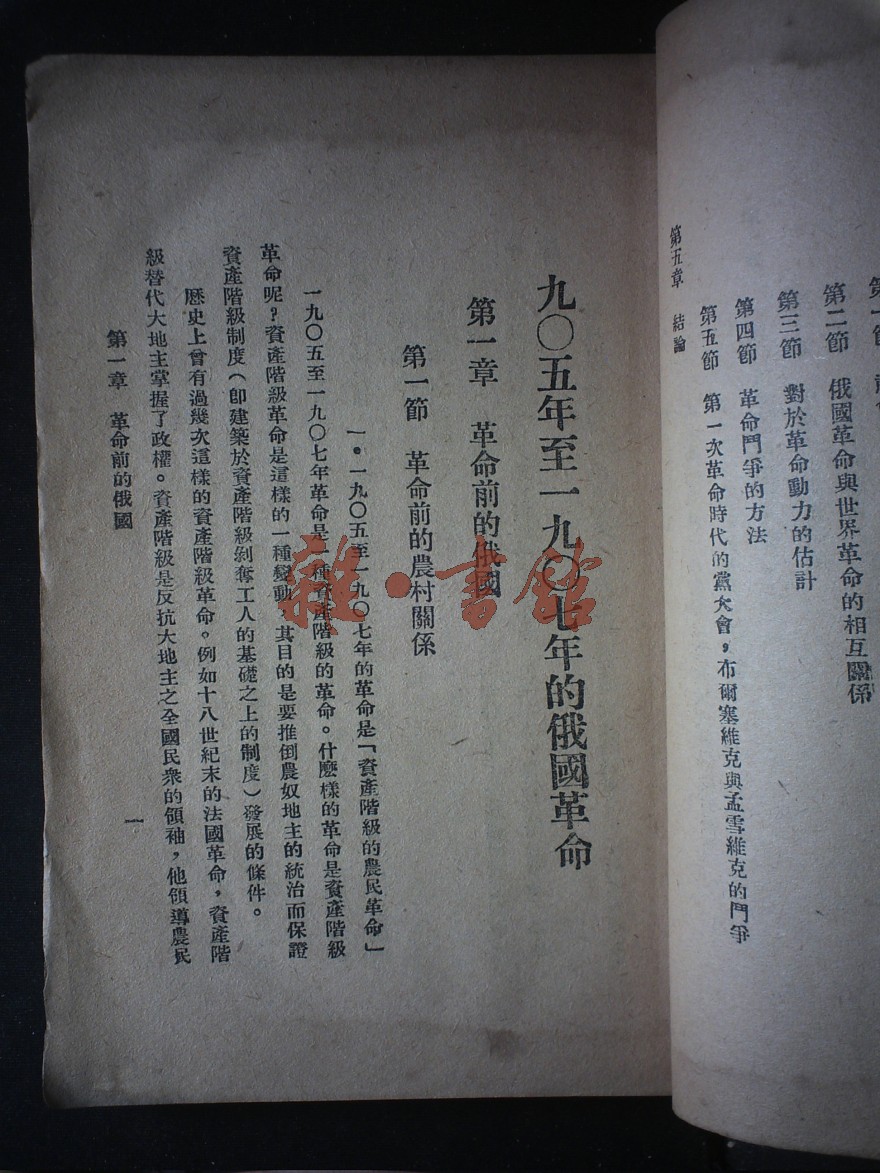 第二節　俄國革命與世界革命的相互關係
第三節　對於革命動力的估計
第四節　革命鬥爭的方法
第五節　第一次革命時代的黨大會，布爾塞維克與孟雪維克的鬥爭
第五章　結論
九〇五年至一九〇七年的俄國革命
第一章　革命前的俄國
第一節　革命前的農村關係
一・一九〇五至一九〇七年的革命是「資產階級的農民革命」
一九〇五至一九〇七年革命是一種資產階級的革命。什麼樣的革命是資產階級
革命呢？資產階級革命是這樣的一種變動，其目的是要推倒農奴地主的統治而保證
資產階級制度（卽建築於資產階級剝奪工人的基礎之上的制度）發展的條件。
歷史上曾有過幾次這樣的資產階級革命。例如十八世紀末的法國革命，資產階
級替代大地主掌握了政權。資產階級是反抗大地主之全國民衆的領袖，他領導農民
第一章　革命前的俄國
一
雜・書館